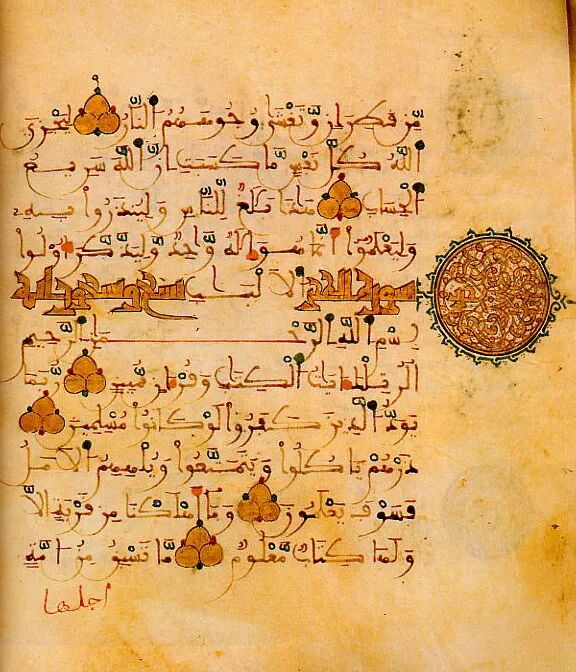 مِّن قَطِرَانٍ وَتَغْشَىٰ وُجُوهَهُمُ النَّارُ لِيَجْزِيَ
اللَّهُ كُلَّ نَفْسٍ مَّا كَسَبَتْ إِنَّ اللَّهَ سَرِيعُ
الْحِسَابِ هَٰذَا بَلَٰغٌ لِّلنَّاسِ وَلِيُنذَرُوا بِهِ
وَلِيَعْلَمُوا أَنَّمَا هُوَ إِلَٰهٌ وَٰحِدٌ وَلِيَذَّكَّرَ أُوْلُوا
سورة الحجر الْأَلْبَٰبِ تسع وتسعون اية
بِسْمِ اللَّهِ الرَّحْمَٰنِ الرَّحِيمِ
الر تِلْكَ ءَايَٰتُ الْكِتَٰبِ وَقُرْءَانٍ مُّبِينٍ رُّبَمَا
يَوَدُّ الَّذِينَ كَفَرُوا لَوْ كَانُوا مُسْلِمِينَ
ذَرْهُمْ يَاكُلُوا وَيَتَمَتَّعُوا وَيُلْهِهِمُ الْأَمَلُ
فَسَوْفَ يَعْلَمُونَ وَمَا أَهْلَكْنَا مِن قَرْيَةٍ إِلَّا
وَلَهَا كِتَابٌ مَّعْلُومٌ مَّا تَسْبِقُ مِنْ أُمَّةٍ
اجلها